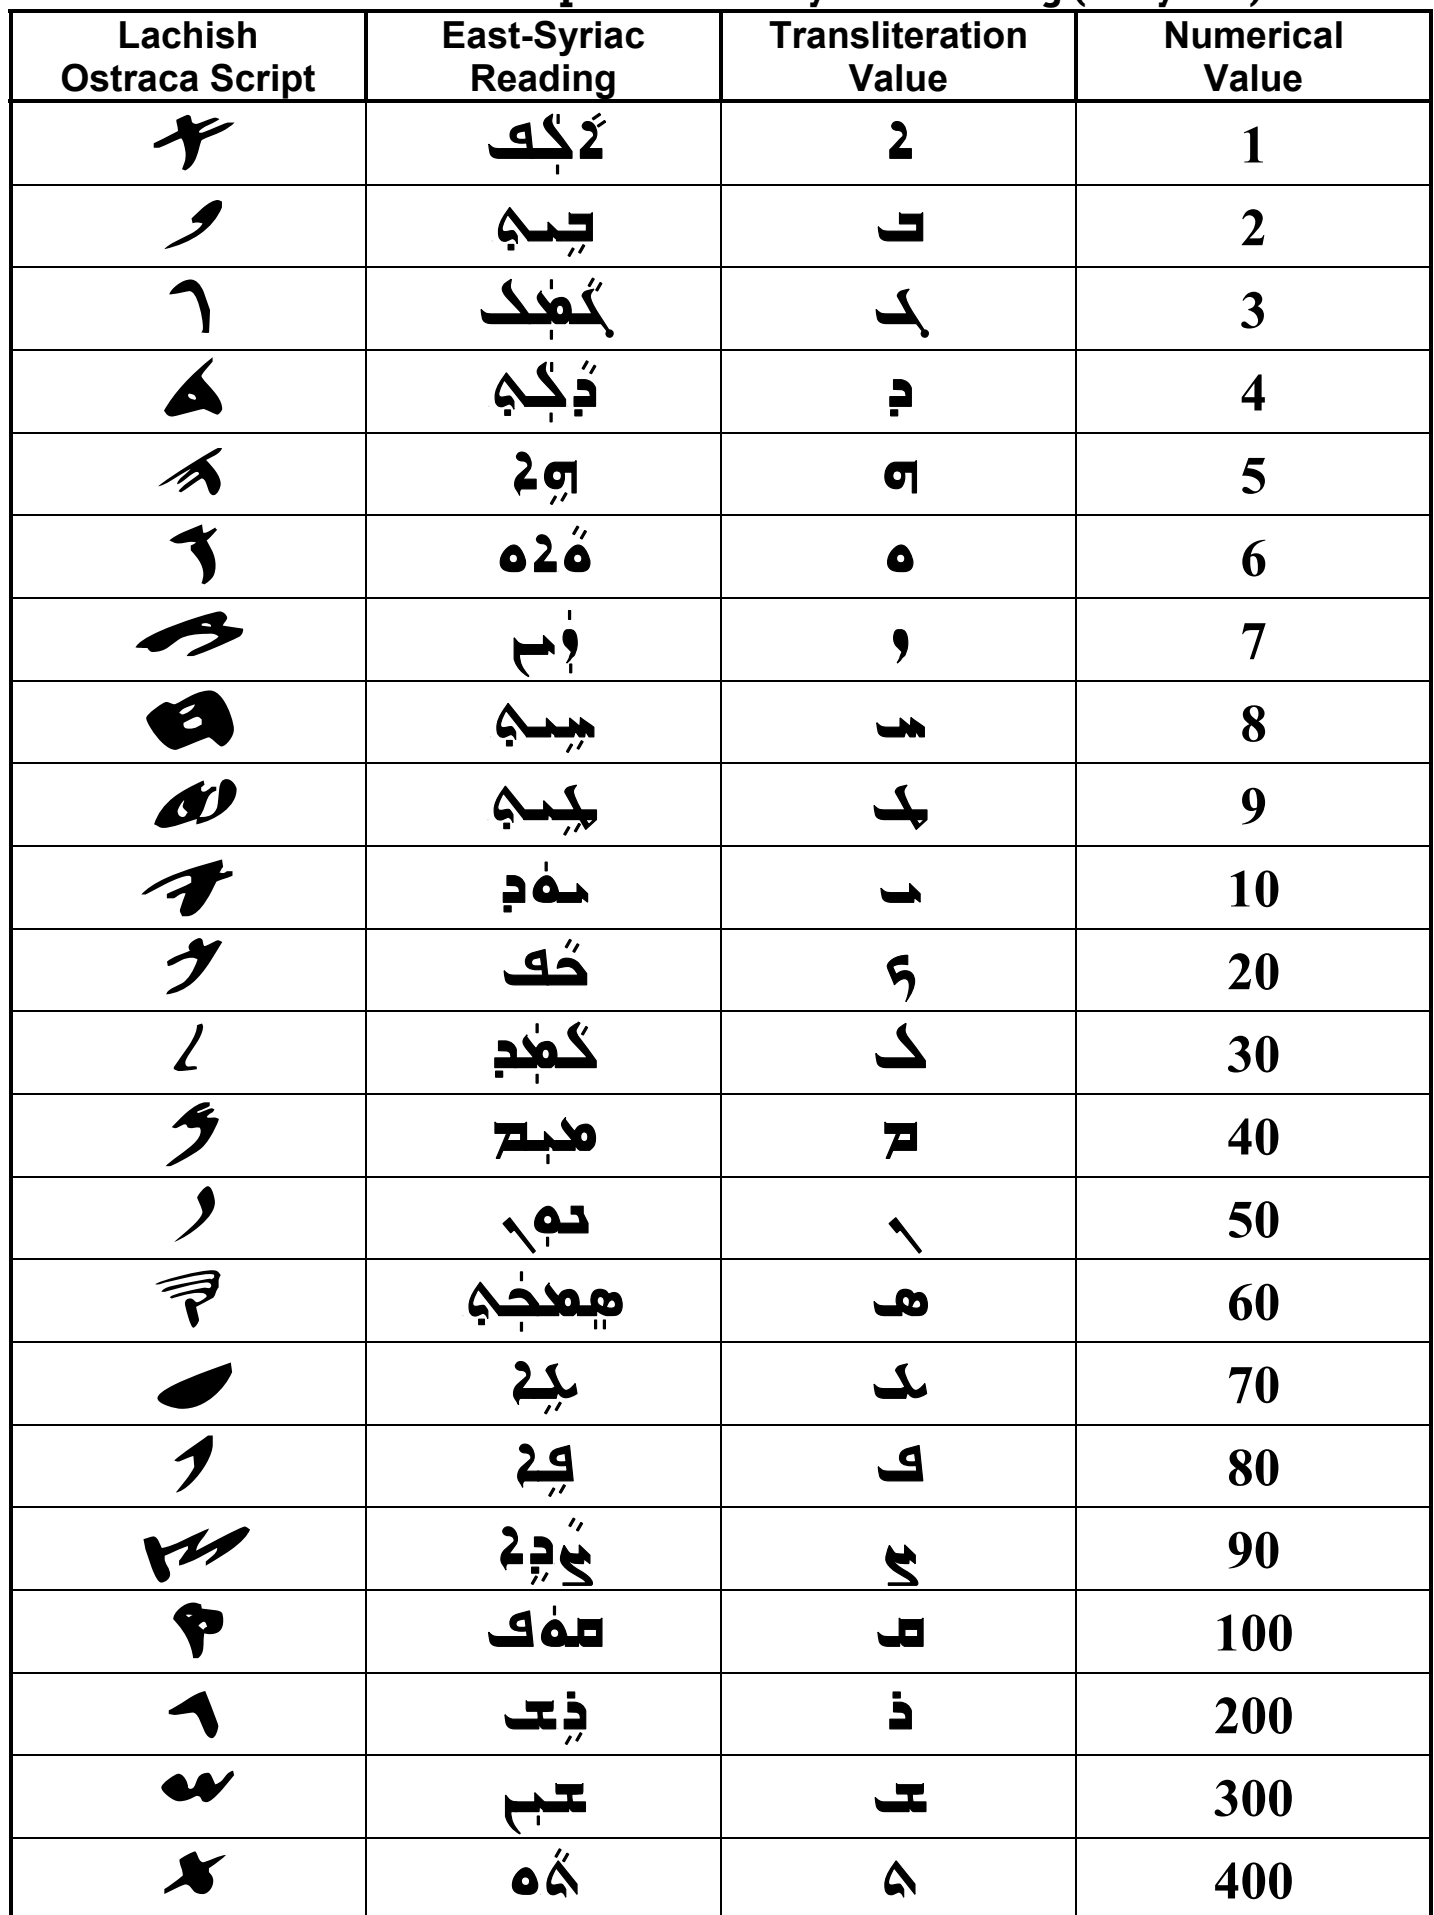 Lachish Ostraca Script East-Syriac Reading Transliteration Value Numerical Value
𐤀 ܐܵܠܲܦ ܐ 1
𐤁 ܒܹܝܬ݂ ܒ 2
𐤂 ܓܵܡܲܠ ܓ 3
𐤃 ܕܵܠܲܬ݂ ܕ 4
𐤄 ܗܹܐ ܗ 5
𐤅 ܘܵܐܘ ܘ 6
𐤆 ܙܲܝܢ ܙ 7
𐤇 ܚܹܝܬ݂ ܚ 8
𐤈 ܛܹܝܬ݂ ܛ 9
𐤉 ܝܘܿܕ ܝ 10
𐤊 ܟܵܦ ܟ 20
𐤋 ܠܵܡܲܕ ܠ 30
𐤌 ܡܝܼܡ ܡ 40
𐤍 ܢܘܼܢ ܢ 50
𐤎 ܣܸܡܟܲܬ݂ ܣ 60
𐤏 ܥܹܐ ܥ 70
𐤐 ܦܹܐ ܦ 80
𐤑 ܨܵܕܹܐ ܨ 90
𐤒 ܩܘܿܦ ܩ 100
𐤓 ܪܹܫ ܪ 200
𐤔 ܫܝܼܢ ܫ 300
𐤕 ܬܵܘ ܬ 400